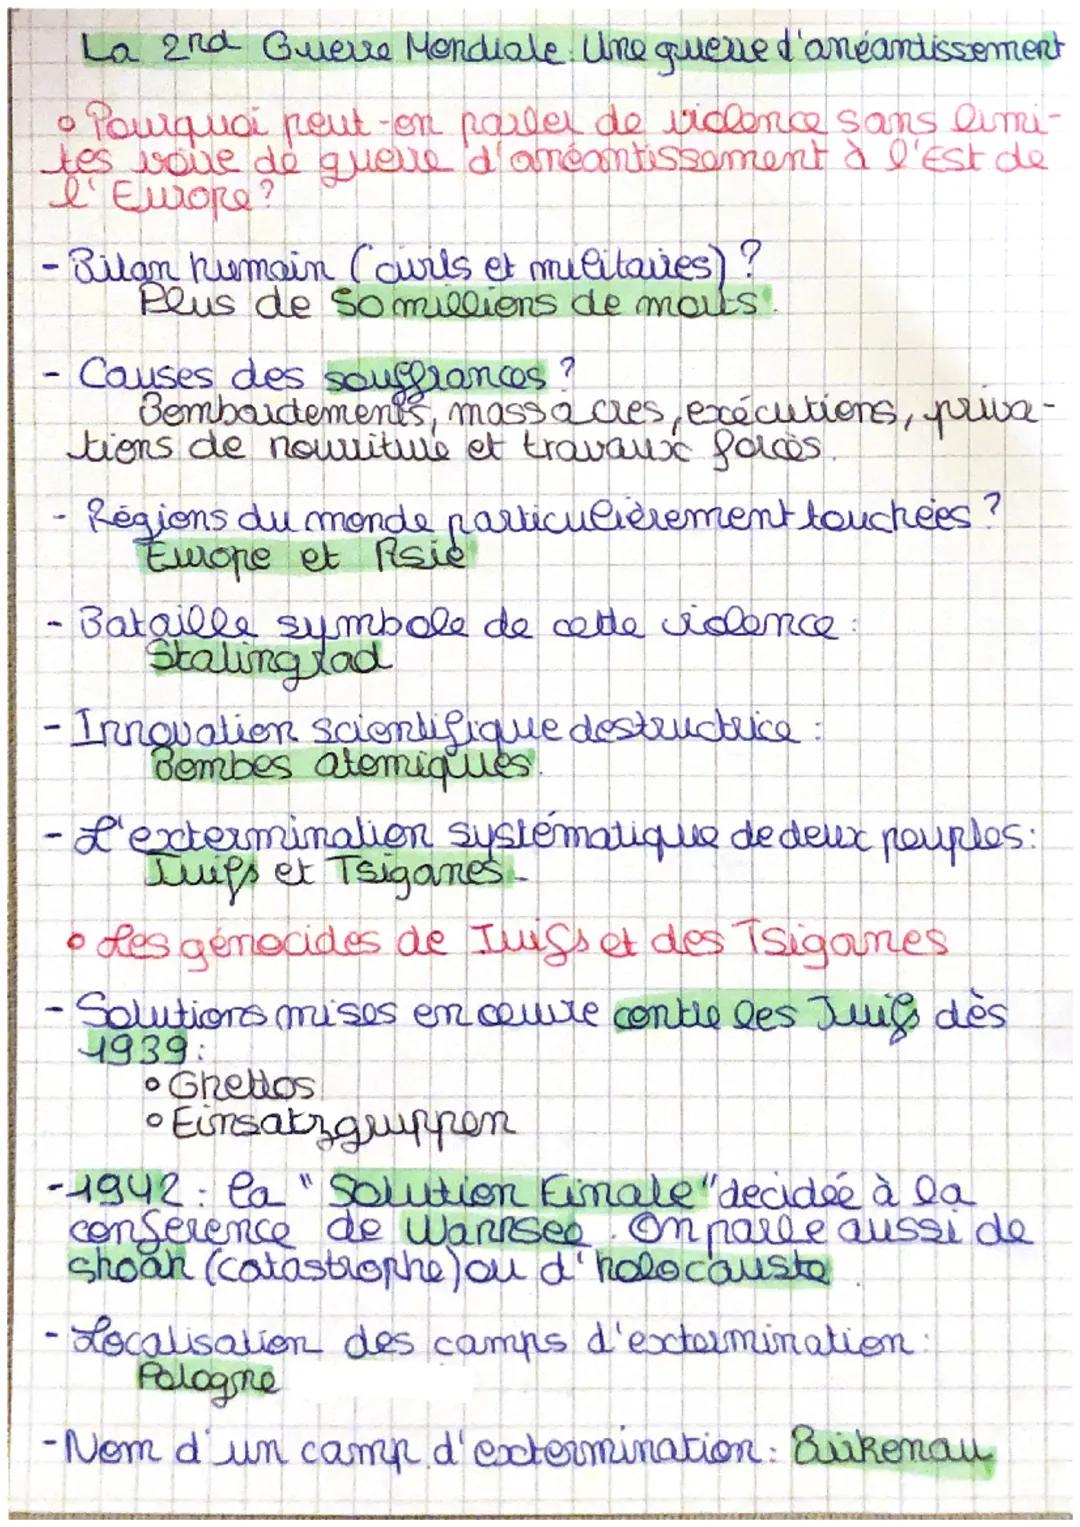 La 2nd Guerre Mondiale: Une guerre d'anéantissement
• Pourquoi peut-on parler de violence sans limi-
tes voire de guerre d'anéantissement à l'Est de
l'Europe?
- Bilan humain (civils et militaires)?
Plus de 50 millions de morts.
- Causes des souffrances?
Bombardements, massacres, exécutions, priva-
tions de nourriture et travaux forcés.
- Régions du monde particulièrement touchées?
Europe et Asie
- Bataille symbole de cette violence:
Stalingrad
- Innovation scientifique destructrice:
Bombes atomiques.
- L'extermination systématique de deux peuples:
Juifs et Tsiganes.
• Les génocides de Juifs et des Tsiganes
- Solutions mises en œuvre contre les Juifs dès
1939:
• Ghettos
• Einsatzgruppen
- 1942: la "Solution Finale" décidée à la
conférence de Wannsee. On parle aussi de
shoah (catastrophe) ou d'holocauste.
- Localisation des camps d'extermination:
Pologne
- Nom d'un camp d'extermination: Birkenau